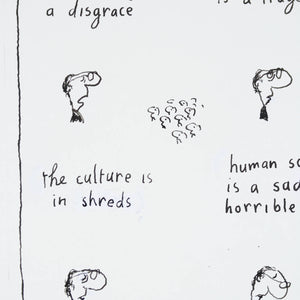 a disgrace
is a
the culture is
in shreds
human
is a sad
horrible